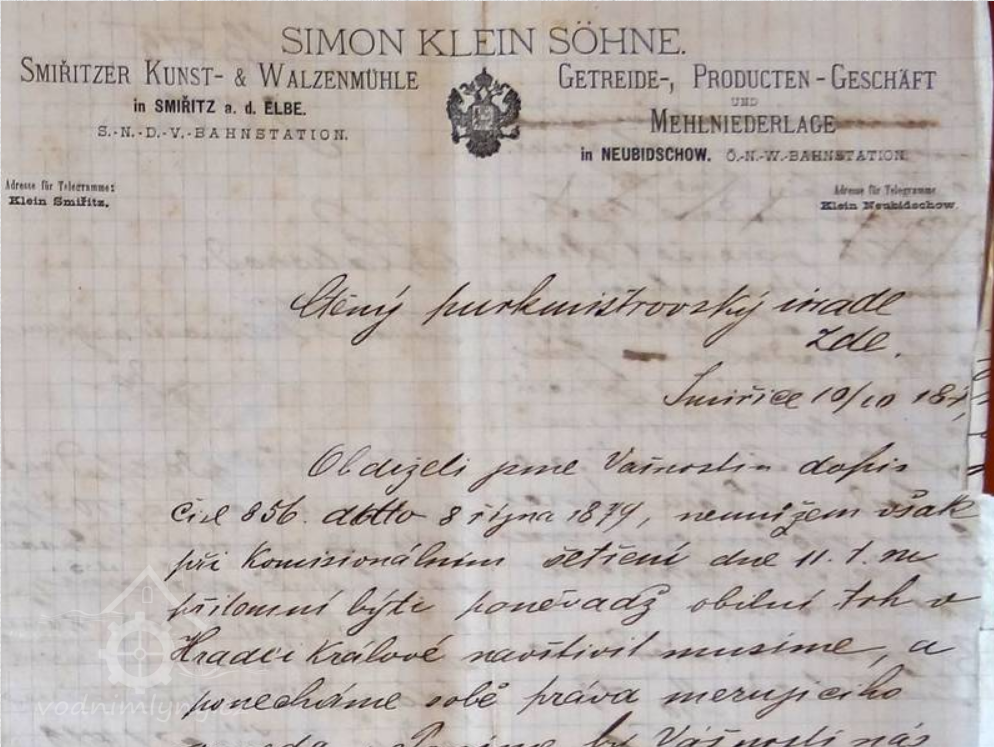 SIMON KLEIN SÖHNE.
SMIŘITZER KUNST- & WALZENMÜHLE
in SMIŘITZ a. d. ELBE.
S.-N.-D.-V.-BAHNSTATION.
GETREIDE-, PRODUCTEN-GESCHÄFT
UND
MEHLNIEDERLAGE
in NEUBIDSCHOW. Ö.-N.-W.-BAHNSTATION.
Adresse für Telegramme:
Klein Smiřitz.
Adresse für Telegramme
Klein Neubidschow.
Ctěný purkmistrovský úřade
Zde.
Smiřice 10/10
Obdrželi jsme Vašnosti dopis
čisl 856. ddtto 8 října 1879, nemužem však
při Komisionálním šetření dne 11. t. m
přítomní býti poněvadž obilní trh v
Hradci Králové navštívit musíme, a
ponecháme sobě práva
by Vašnosti nás
vodnimlyny.cz